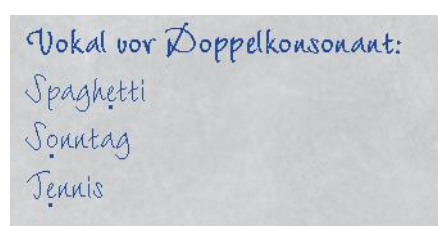 Vokal vor Doppelkonsonant:
Spaghẹtti
Sọnntag
Tẹnnis